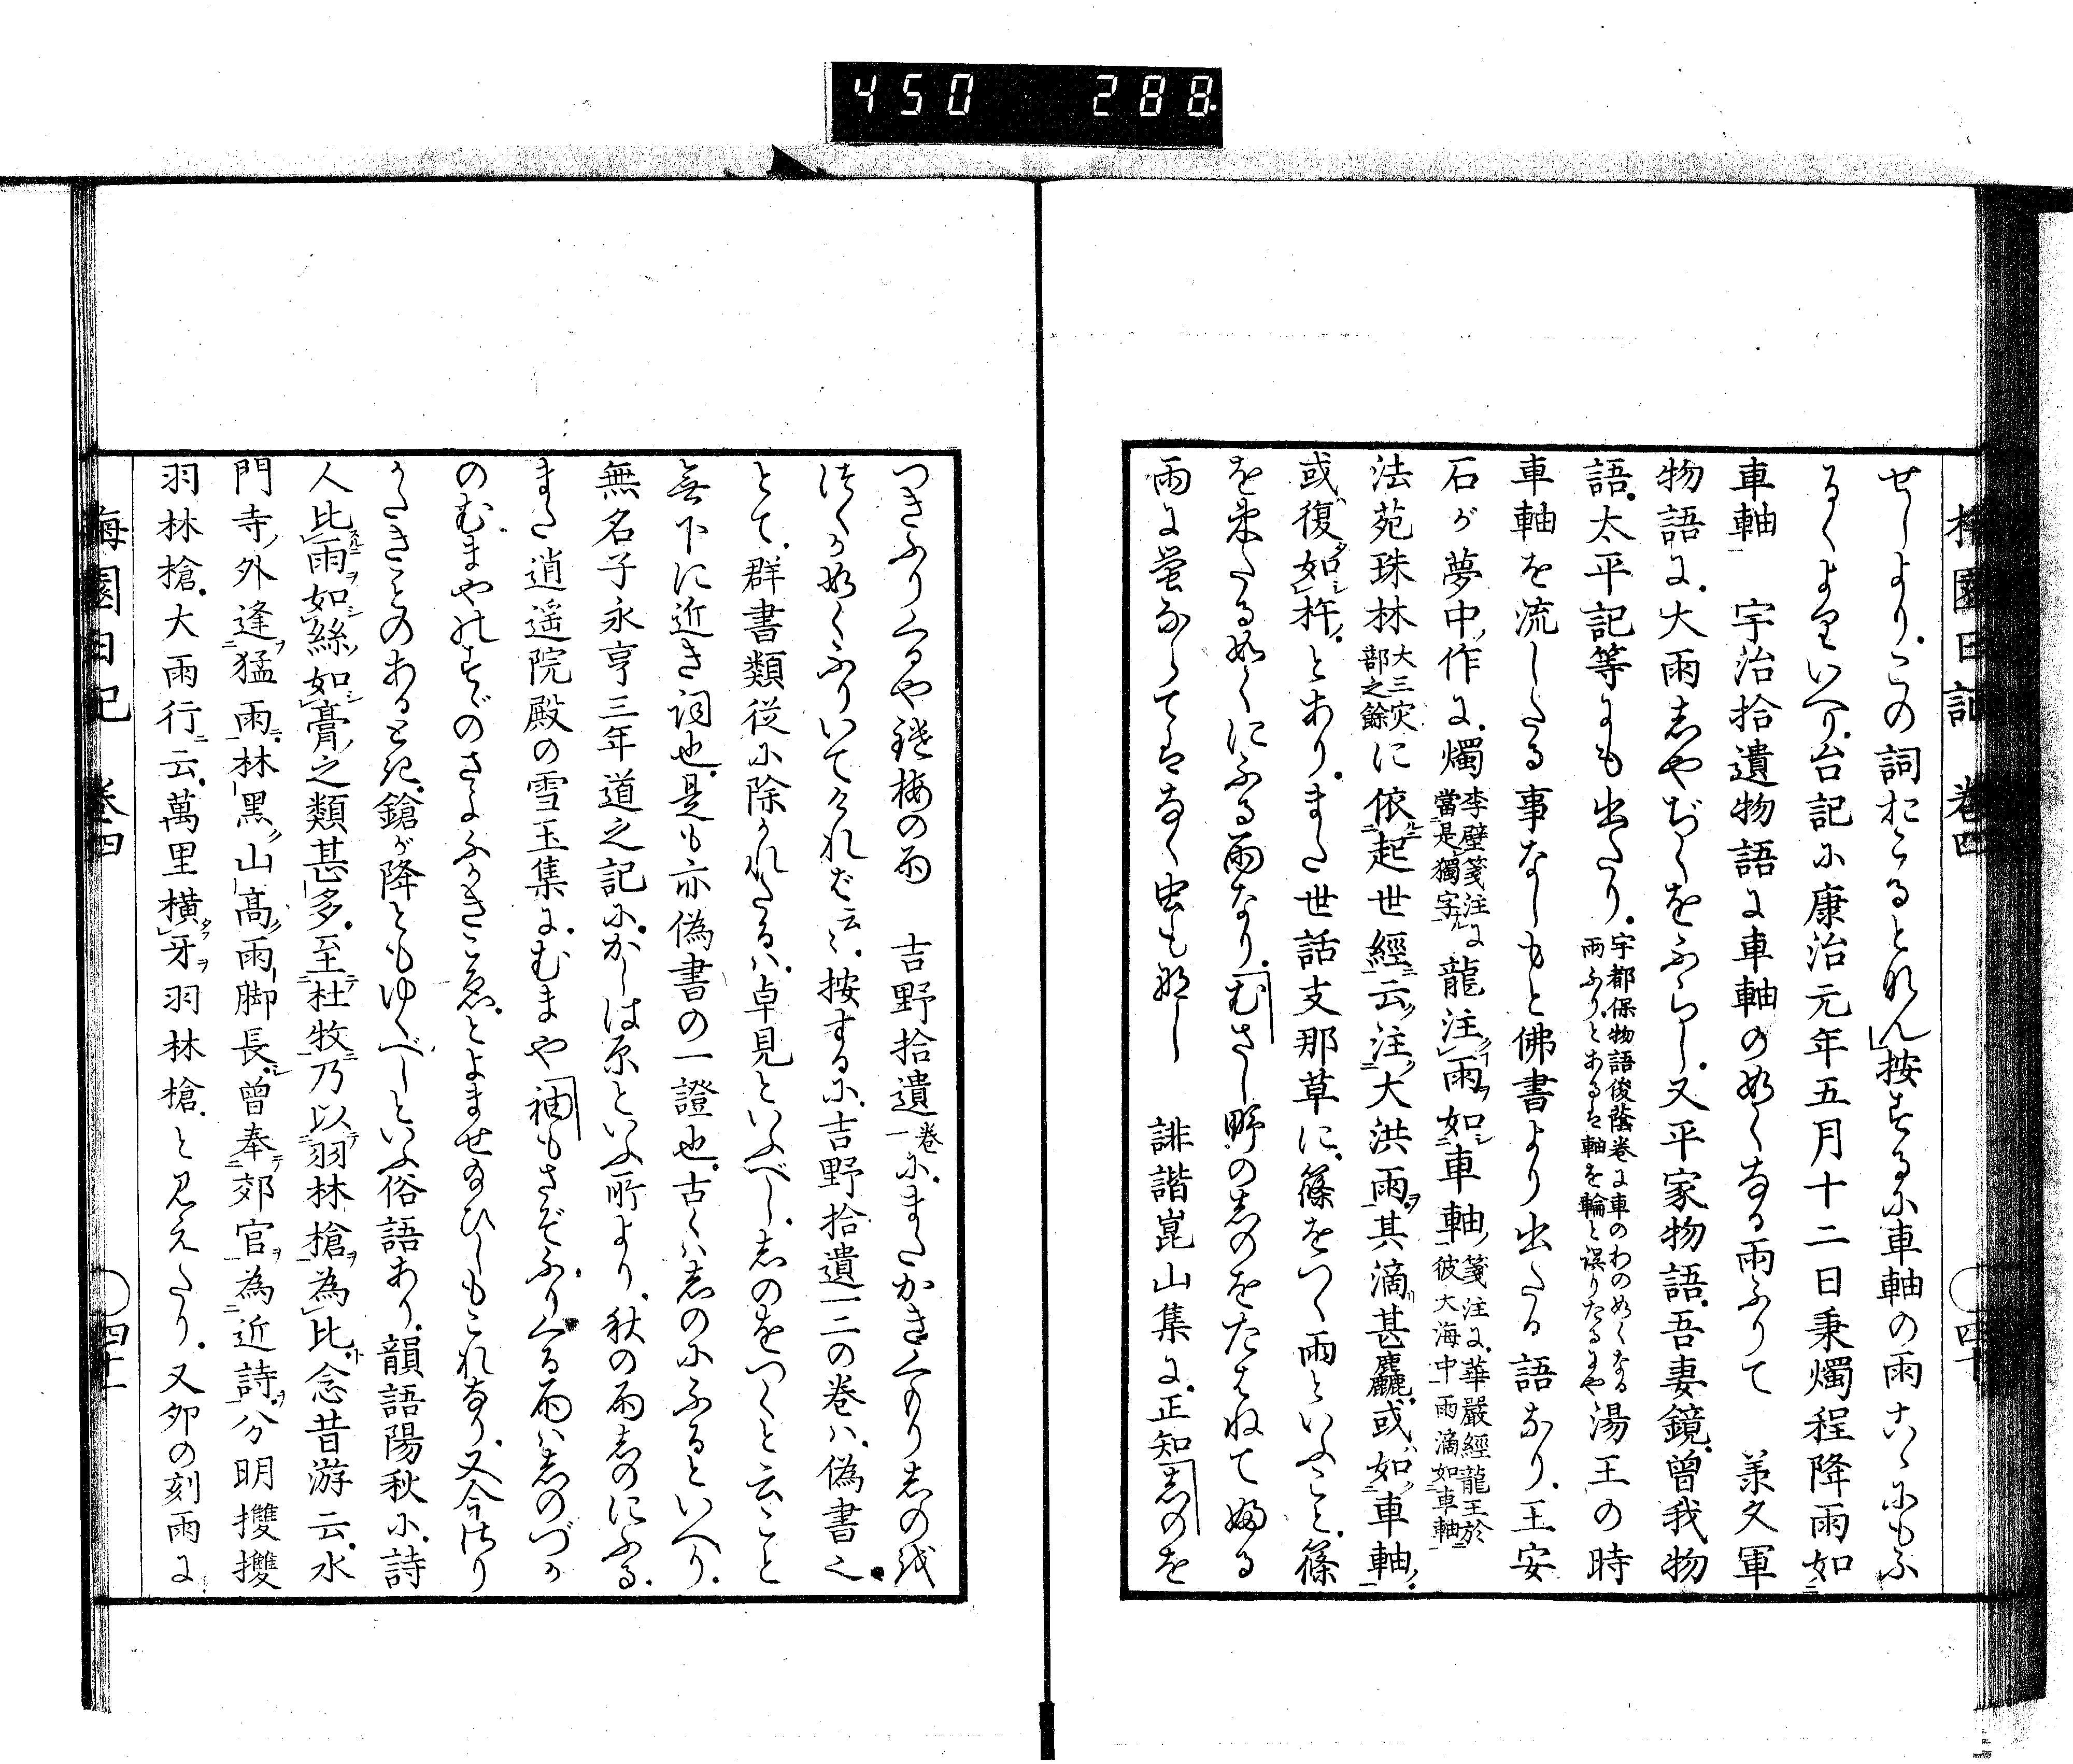 450 288
梅園日記 卷四 四十
せしより.この詞おこるとなん」按ずるに車軸の雨こゝにもふ
るくよりいへり.台記に康治元年五月十二日秉燭程降雨如
車軸 宇治拾遺物語に車軸の如くなる雨ふりて 義文軍
物語に.大雨しやぢくをふらし.又平家物語.吾妻鏡.曾我物
語.太平記等にも出たり.宇都保物語俊蔭卷に車のわの如くなる雨ふり.とあるは軸を輪と誤りたるにや湯王の時
車軸を流したる事なしもと佛書より出たる語なり.王安
石が夢中ノ作に.燭李壁箋注に當是獨字龍注雨如車軸箋注に.華嚴經龍王於彼大海中雨滴如車軸
法苑珠林大三灾部之餘に依起世經云.注大洪雨.其滴甚麤.或如車軸.
或復如杵.とあり.また世話支那草に.篠をつく雨といふこと.篠
を束たる如くにふる雨なり.むさし野のしのをたばねて ふる
雨に螢ならではなく虫もなし 誹諧崑山集に.正知しのを
つきふりくるや鑓梅の雨 吉野拾遺卷一に.またかきくもりしのを
つくが如くふりいでければ云々.按するに.吉野拾遺三の卷は.偽書也.
とて.群書類従に除かれたるは.卓見といふべし.しのをつくと云こと
無下に近き詞也.是も亦偽書の一證也.古くはしのにふるといへり.
無名子永享三年道之記に.かしは原といふ所より.秋の雨しのにふる.
また逍遥院殿の雪玉集に.むまや袖もさぞふりくる雨はしのづか
のむまやのすゞのさよふかきこゑ.とよませ給ひしもこれなり.又今清り
かたきことのあるとき.鎗が降ともゆくべしといふ俗語あり.韻語陽秋に.詩
人比雨如絲如膏之類甚多.至杜牧乃以羽林槍為比.念昔游云.水
門寺外逢猛雨.林黒山高雨脚長.曾奉郊官為近詩.分明攪攪
羽林槍.大雨行云.萬里横牙羽林槍.と見えたり.又卯の刻雨に
梅園日記 卷四 四十一